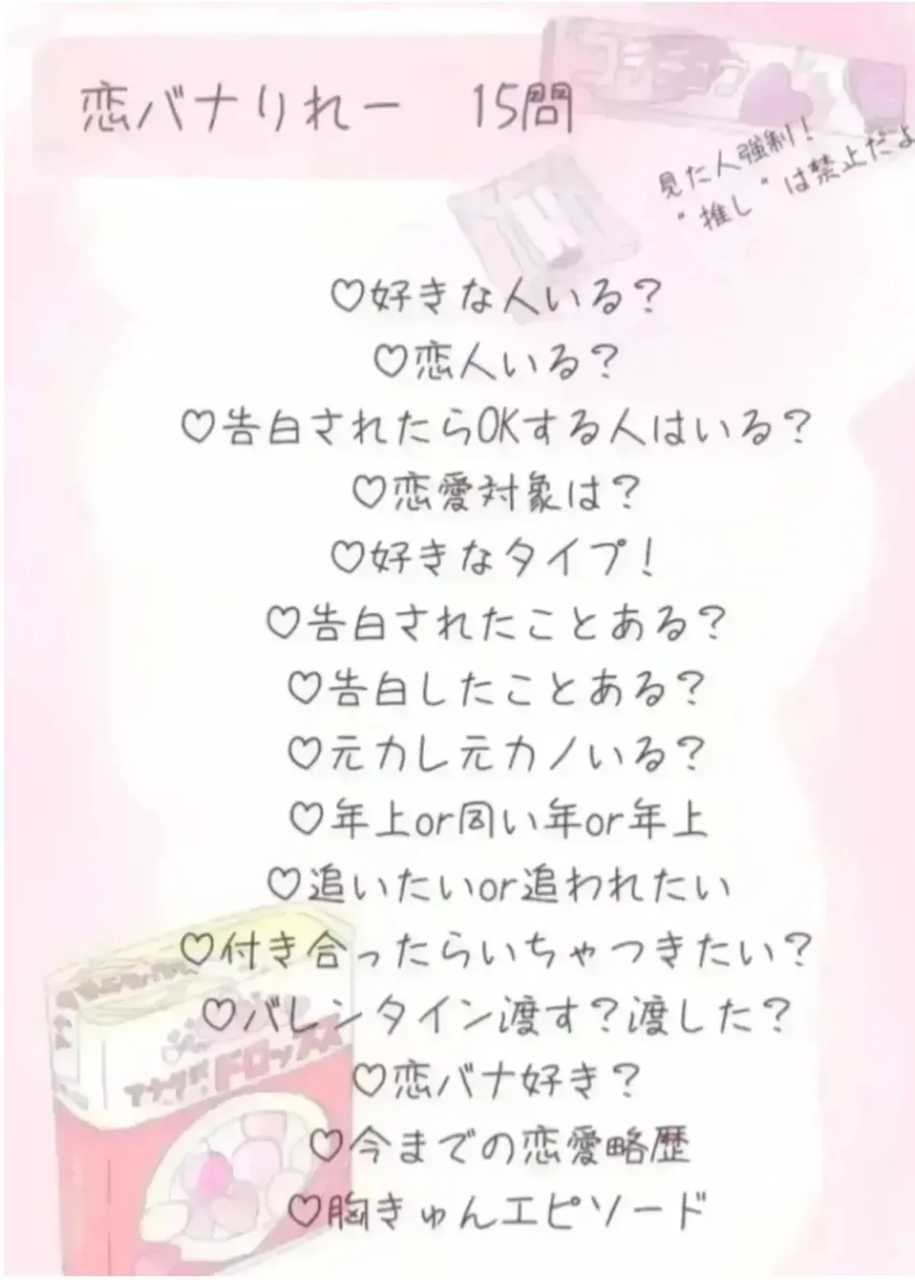 恋バナりれー 15問
見た人強制!
"推し"は禁止だよ
♡好きな人いる?
♡恋人いる?
♡告白されたらOKする人はいる?
♡恋愛対象は?
♡好きなタイプ!
♡告白されたことある?
♡告白したことある?
♡元カレ元カノいる?
♡年上or同い年or年上
♡追いたいor追われたい
♡付き合ったらいちゃつきたい?
♡バレンタイン渡す?渡した?
♡恋バナ好き?
♡今までの恋愛略歴
♡胸きゅんエピソード
ドロップス